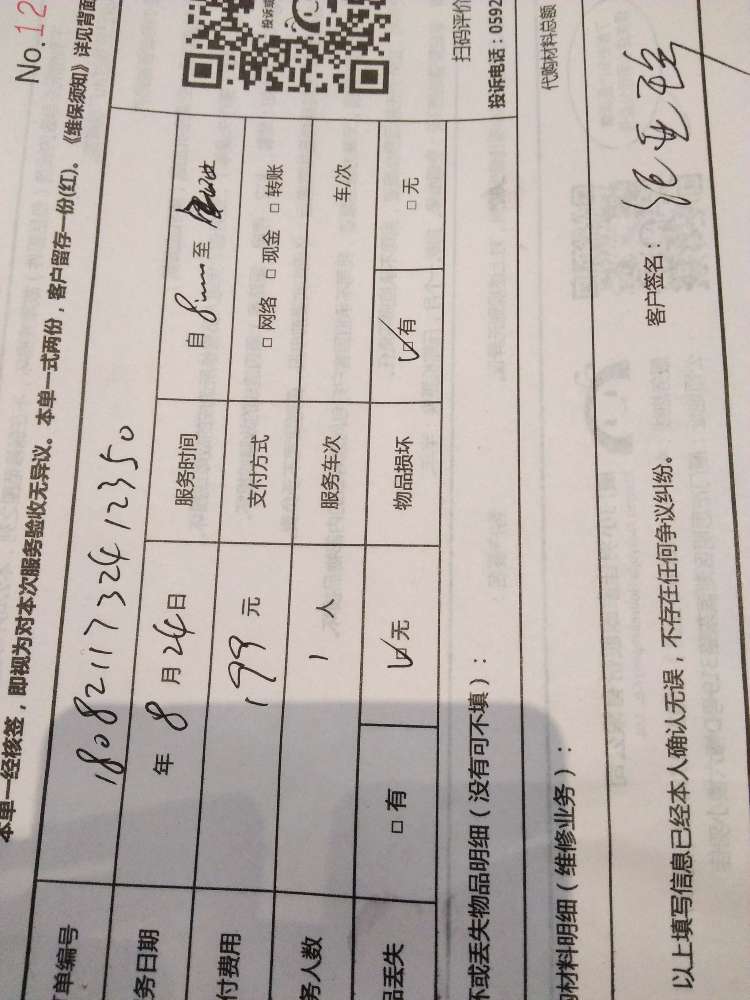 No.12
本单一经核签，即视为对本次服务验收无异议。本单一式两份，客户留存一份(红)。《维保须知》详见背面
单编号 1808211732412350
务日期 年 8 月 24 日 服务时间 自 8 至
付费用 199 元 支付方式 □ 网络 □ 现金 □ 转账
务人数 1 人 服务车次 车/次
品丢失 □ 有 ☑ 无 物品损坏 ☑ 有 □ 无
坏或丢失物品明细（没有可不填）：
扫码评价
投诉电话：0592
材料明细（维修业务）：
代购材料总额
以上填写信息已经本人确认无误，不存在任何争议纠纷。 客户签名：